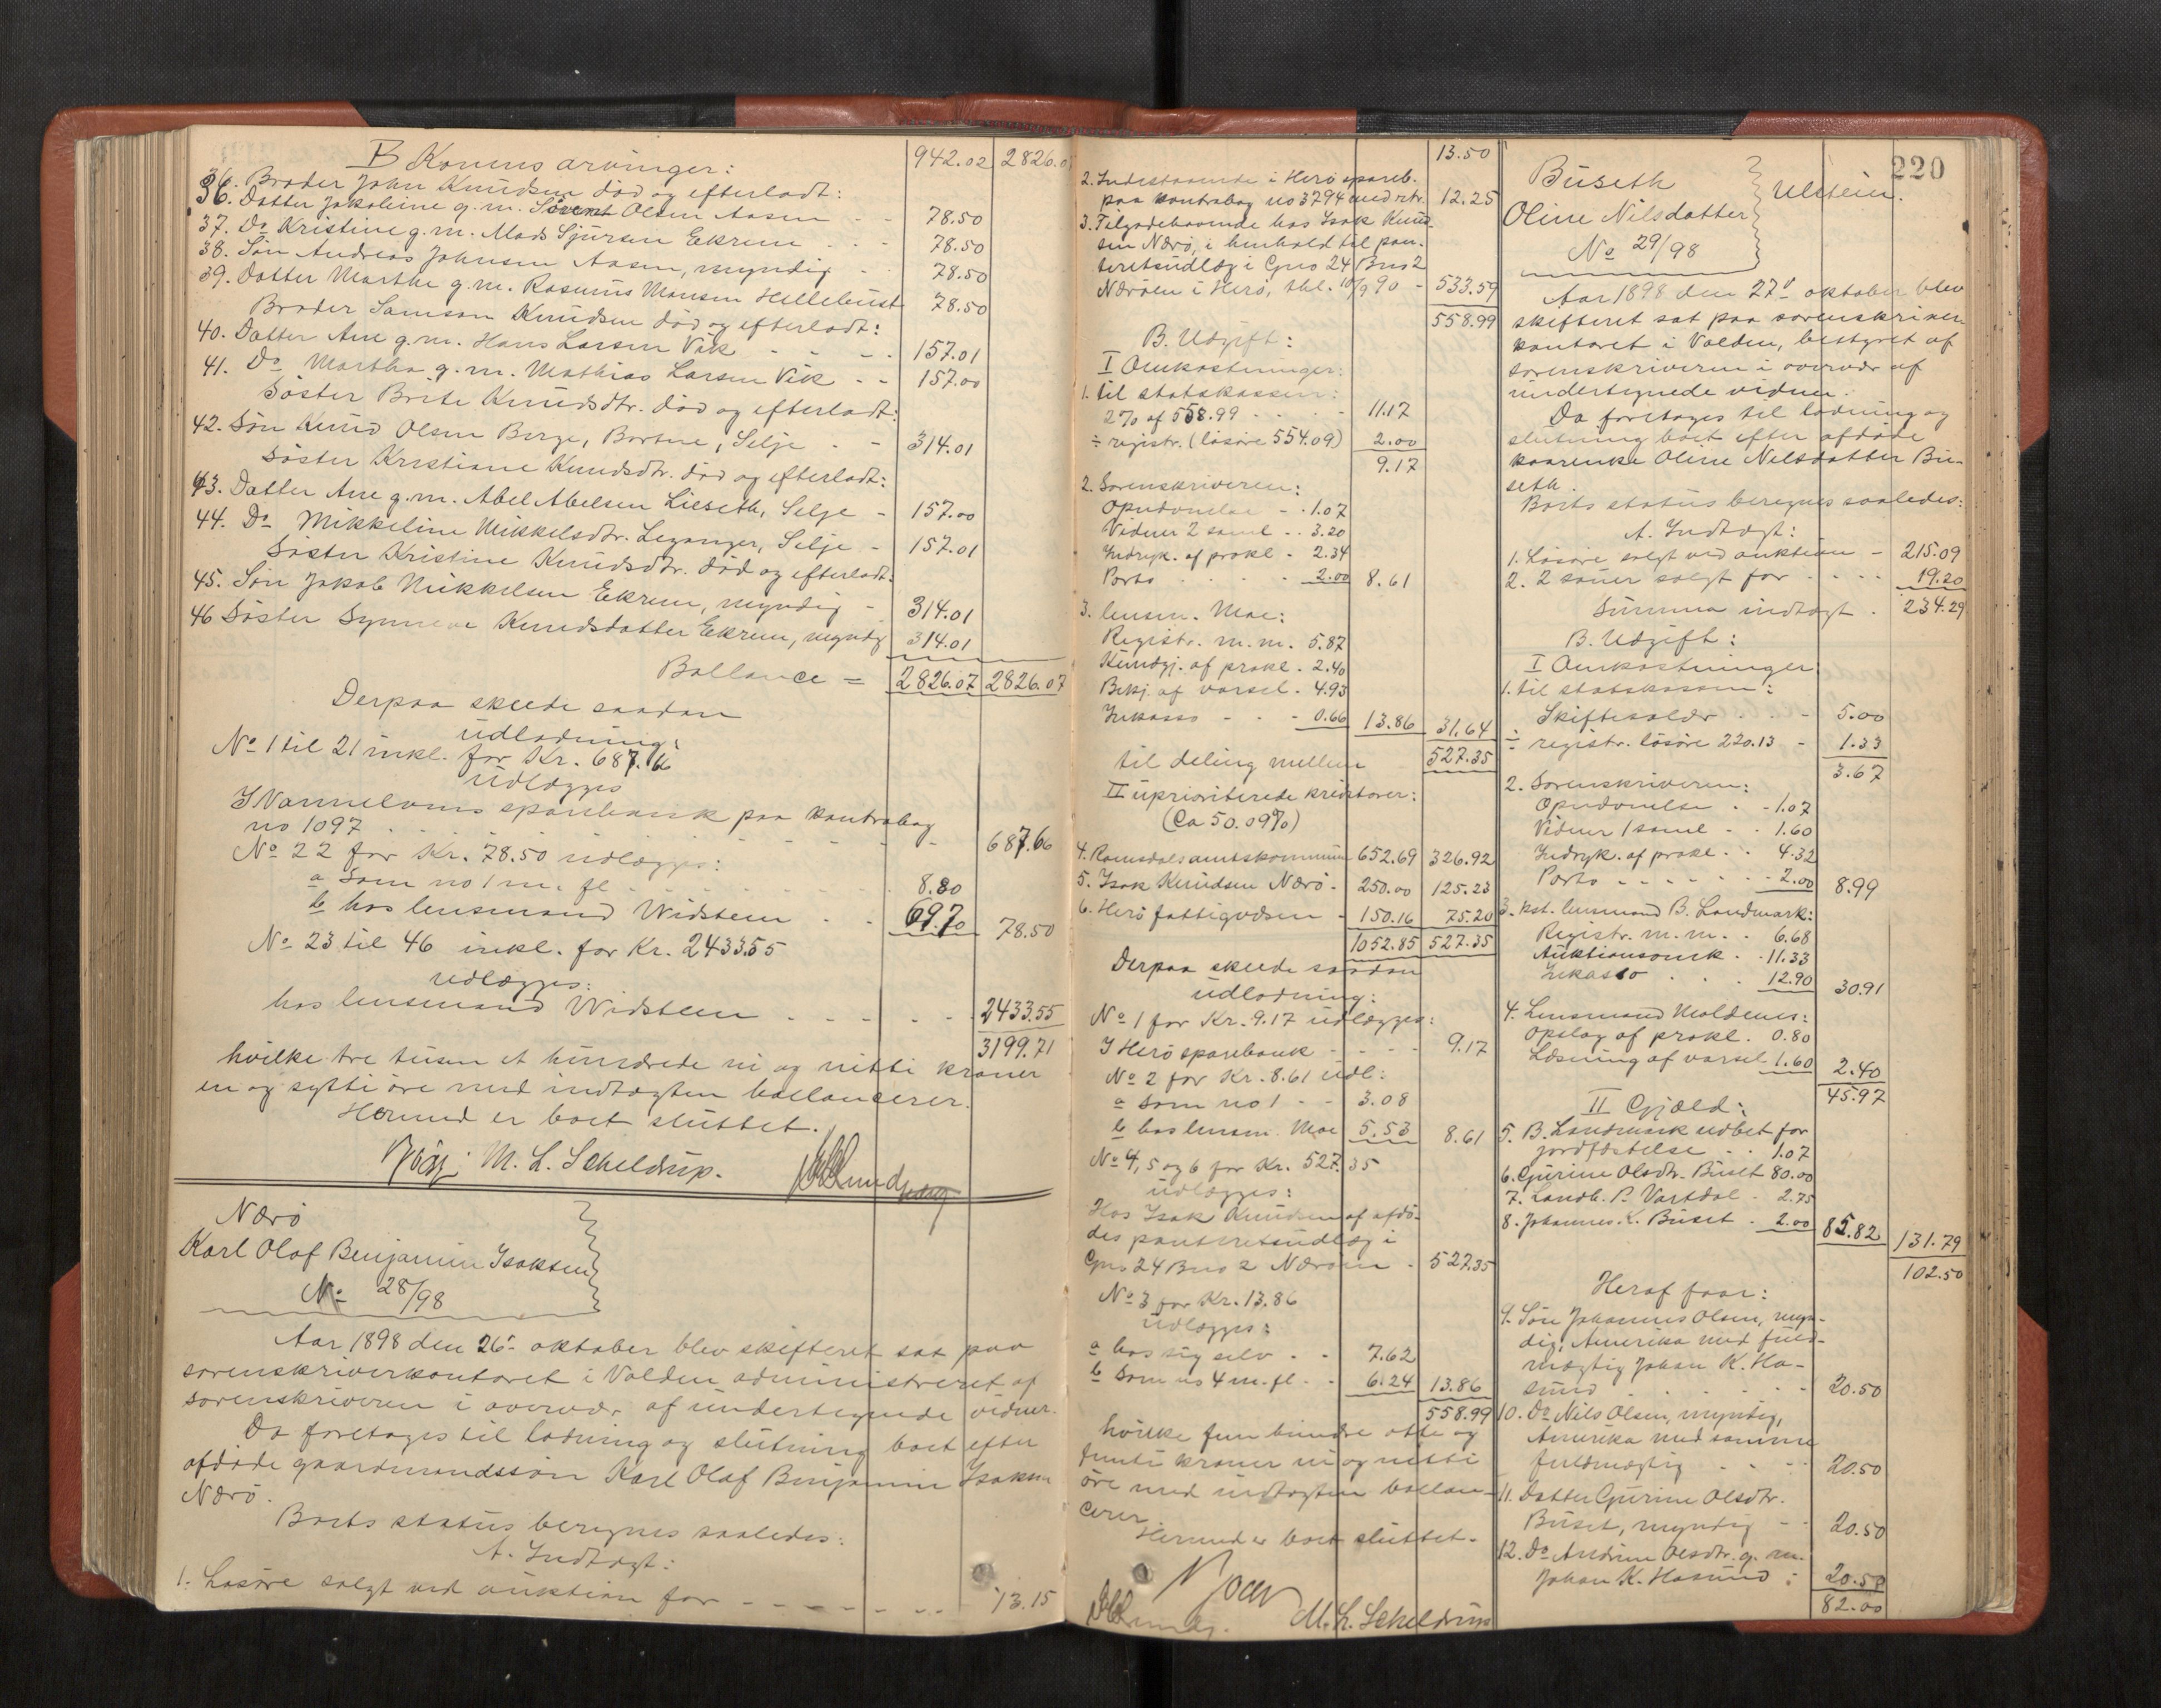 B Konens arvinger:
942.02 2826.07
Broder John Knudsen död og efterladt:
36. Datter Jakoline g.m. Sivert Olsen Aasen - - 78.50
37. Do Kristine g.m. Mads Sjursen Ekrem - - 78.50
38. Sön Andreas Johnsen Aasen, myndig - 78.50
39. Datter Marthe g.m. Rasmus Monsen Hellebust 78.50
Broder Samson Knudsen död og efterladt:
40. Datter Ane g.m. Hans Larsen Vik - - - 157.01
41. Do Martha g.m. Mathias Larsen Vik - - 157.00
Söster Brite Knudsdtr. död og efterladt:
42. Sön Knud Olsen Berge, Bortne, Selje - - 314.01
Söster Kristiane Knudsdtr. död og efterladt:
43. Datter Ane g.m. Abel Abelsen Lieseth, Selje - 157.00
44. Do Mikkeline Mikkelsdtr. Leganger, Selje - 157.01
Söster Kristine Knudsdtr. död og efterladt:
45. Sön Jakob Mikkelsen Ekrem, myndig - 314.01
46 Söster Synneve Knudsdatter Ekrem, myndig 314.01
Ballance = 2826.07 2826.07
Derpaa skede saadan
udlodning:
No 1 til 21 inkl. for Kr. 687.66
udlægges
I Vannelvens sparebank paa kontrabog
no 1097 - - - - - - 687.66
No 22 for Kr. 78.50 udlægges:
a som no 1 m. fl - - - 8.80
b hos lensmand Widsteen - - 69.70 78.50
No 23 til 46 inkl. for Kr. 2433.55
udlægges:
hos lensmand Widsteen - - - - - 2433.55
3199.71
hvilke tre tusen et hundrede ni og nitti kroner
en og sytti öre med indtægten ballancerer.
Hermed er boet sluttet.
M. L. Scheldrup.
Nærö
Karl Olaf Benjamin Isaksen
No 28/98
Aar 1898 den 26- oktober blev skifteret sat paa
sorenskriverkontoret i Volden administreret af
sorenskriveren i overvær af undertegnede vidner.
Da foretoges til lodning og slutning boet efter
afdöde gaardmandssön Karl Olaf Benjamin Isaksen
Nærö.
Boets status beregnes saaledes:
A. Indtægt:
1. Lösöre solgt ved auktion for - - - - - - - 13.15
13.50
2. Indestaaende i Herö spareb.
paa kontrabog no 3794 med rtr. 12.25
3. Tilgodehavende hos Isak Knud-
sen Nærö, i henhold til pan-
teretsudlæg i Gno 24 Bno 2
Næröen i Herö, thl. 10/9 90 - 533.59
558.99
B. Udgift:
I Omkostninger:
1. til statskassen:
2% af 558.99 - - - - 11.17
÷ registr. (lösöre 554.09) 2.00
9.17
2. Sorenskriveren:
Opndvnelse - - 1.07
Vidner 2 saml - - 3.20
Indryk. af prokl - 2.34
Porto - - - - 2.00 8.61
3. lensm. Moe:
Registr. m.m. 5.87
Kundgj. af prokl. - 2.40
Bekj. af varsel - 4.93
Inkasso - - - 0.66 13.86 31.64
til deling mellem 527.35
II uprioriterede kreditorer:
(Ca 50.09%)
4. Romsdals amtskommune 652.69 326.92
5. Isak Knudsen Nærö - 250.00 125.23
6. Herö fattigvæsen - 150.16 75.20
1052.85 527.35
Derpaa skede saadan
udlodning:
No 1 for Kr. 9.17 udlægges:
I Herö sparebank - - - - 9.17
No 2 for Kr. 8.61 udl:
a som no 1 - - 3.08
b hos lensm. Moe 5.53 8.61
No 4, 5 og 6 for Kr. 527.35
udlægges:
Hos Isak Knudsen af afdö-
des panteretsudlæg i
Gno 24 Bno 2 Næröen - 527.35
No 3 for Kr. 13.86
udlægges:
a hos sig selv - - 7.62
b som no 4 m. fl - - 6.24 13.86
558.99
hvilke fem hundre otte og
femti kroner ni og nitti
öre med indtægten ballan-
cerer.
Hermed er boet sluttet.
M. L. Scheldrup
220
Buseth
Oline Nilsdatter
No 29/98
Ulstein.
Aar 1898 den 27de oktober blev
skifteret sat paa sorenskriver-
kontoret i Volden, bestyret af
sorenskriveren i overvær af
undertegnede vidner.
Da foretoges til lodning og
slutning boet efter afdöde
kaarenke Oline Nilsdatter Bu-
seth.
Boets status beregnes saaledes:
A. Indtægt:
1. Lösöre solgt ved auktion - 215.09
2. 2 sauer solgt for - - - - 19.20
Summa indtægt - 234.29
B. Udgift:
I Omkostninger
1. til statskassen:
Skiftesalær - - - 5.00
÷ registr. lösöre 220.13 - 1.33
3.67
2. Sorenskriveren:
Opndvnelse - - 1.07
Vidner 1 saml - - 1.60
Indryk. af prokl. - - 4.32
Porto - - - - - 2.00 8.99
3. kst. lensmand B. Landmark:
Registr. m.m. - 6.68
Auktionsomk. - 11.33
Inkasso - - - 12.90 30.91
4. Lensmand Moldenes:
Opslag af prokl. 0.80
Læsning af varsel 1.60 2.40
45.97
II Gjæld:
5. B. Landmark udbet for
jordfæstelse - - 1.07
6. Gurine Olsdtr. Buset 80.00
7. Landh. P. Vartdal - 2.75
8. Johannes K. Buset - 2.00 85.82 131.79
102.50
Heraf faar:
9. Sön Johannes Olsen, myn-
dig, Amerika med fuld-
mægtig Johan K. Ha-
sund - - - - - 20.50
10. Do Nils Olsen, myndig,
Amerika med samme
fuldmægtig - - - 20.50
11. Datter Gurine Olsdtr.
Buset, myndig - - 20.50
12. Do Andrine Olsdtr. g. m.
Johan K. Hasund - 20.50
82.00